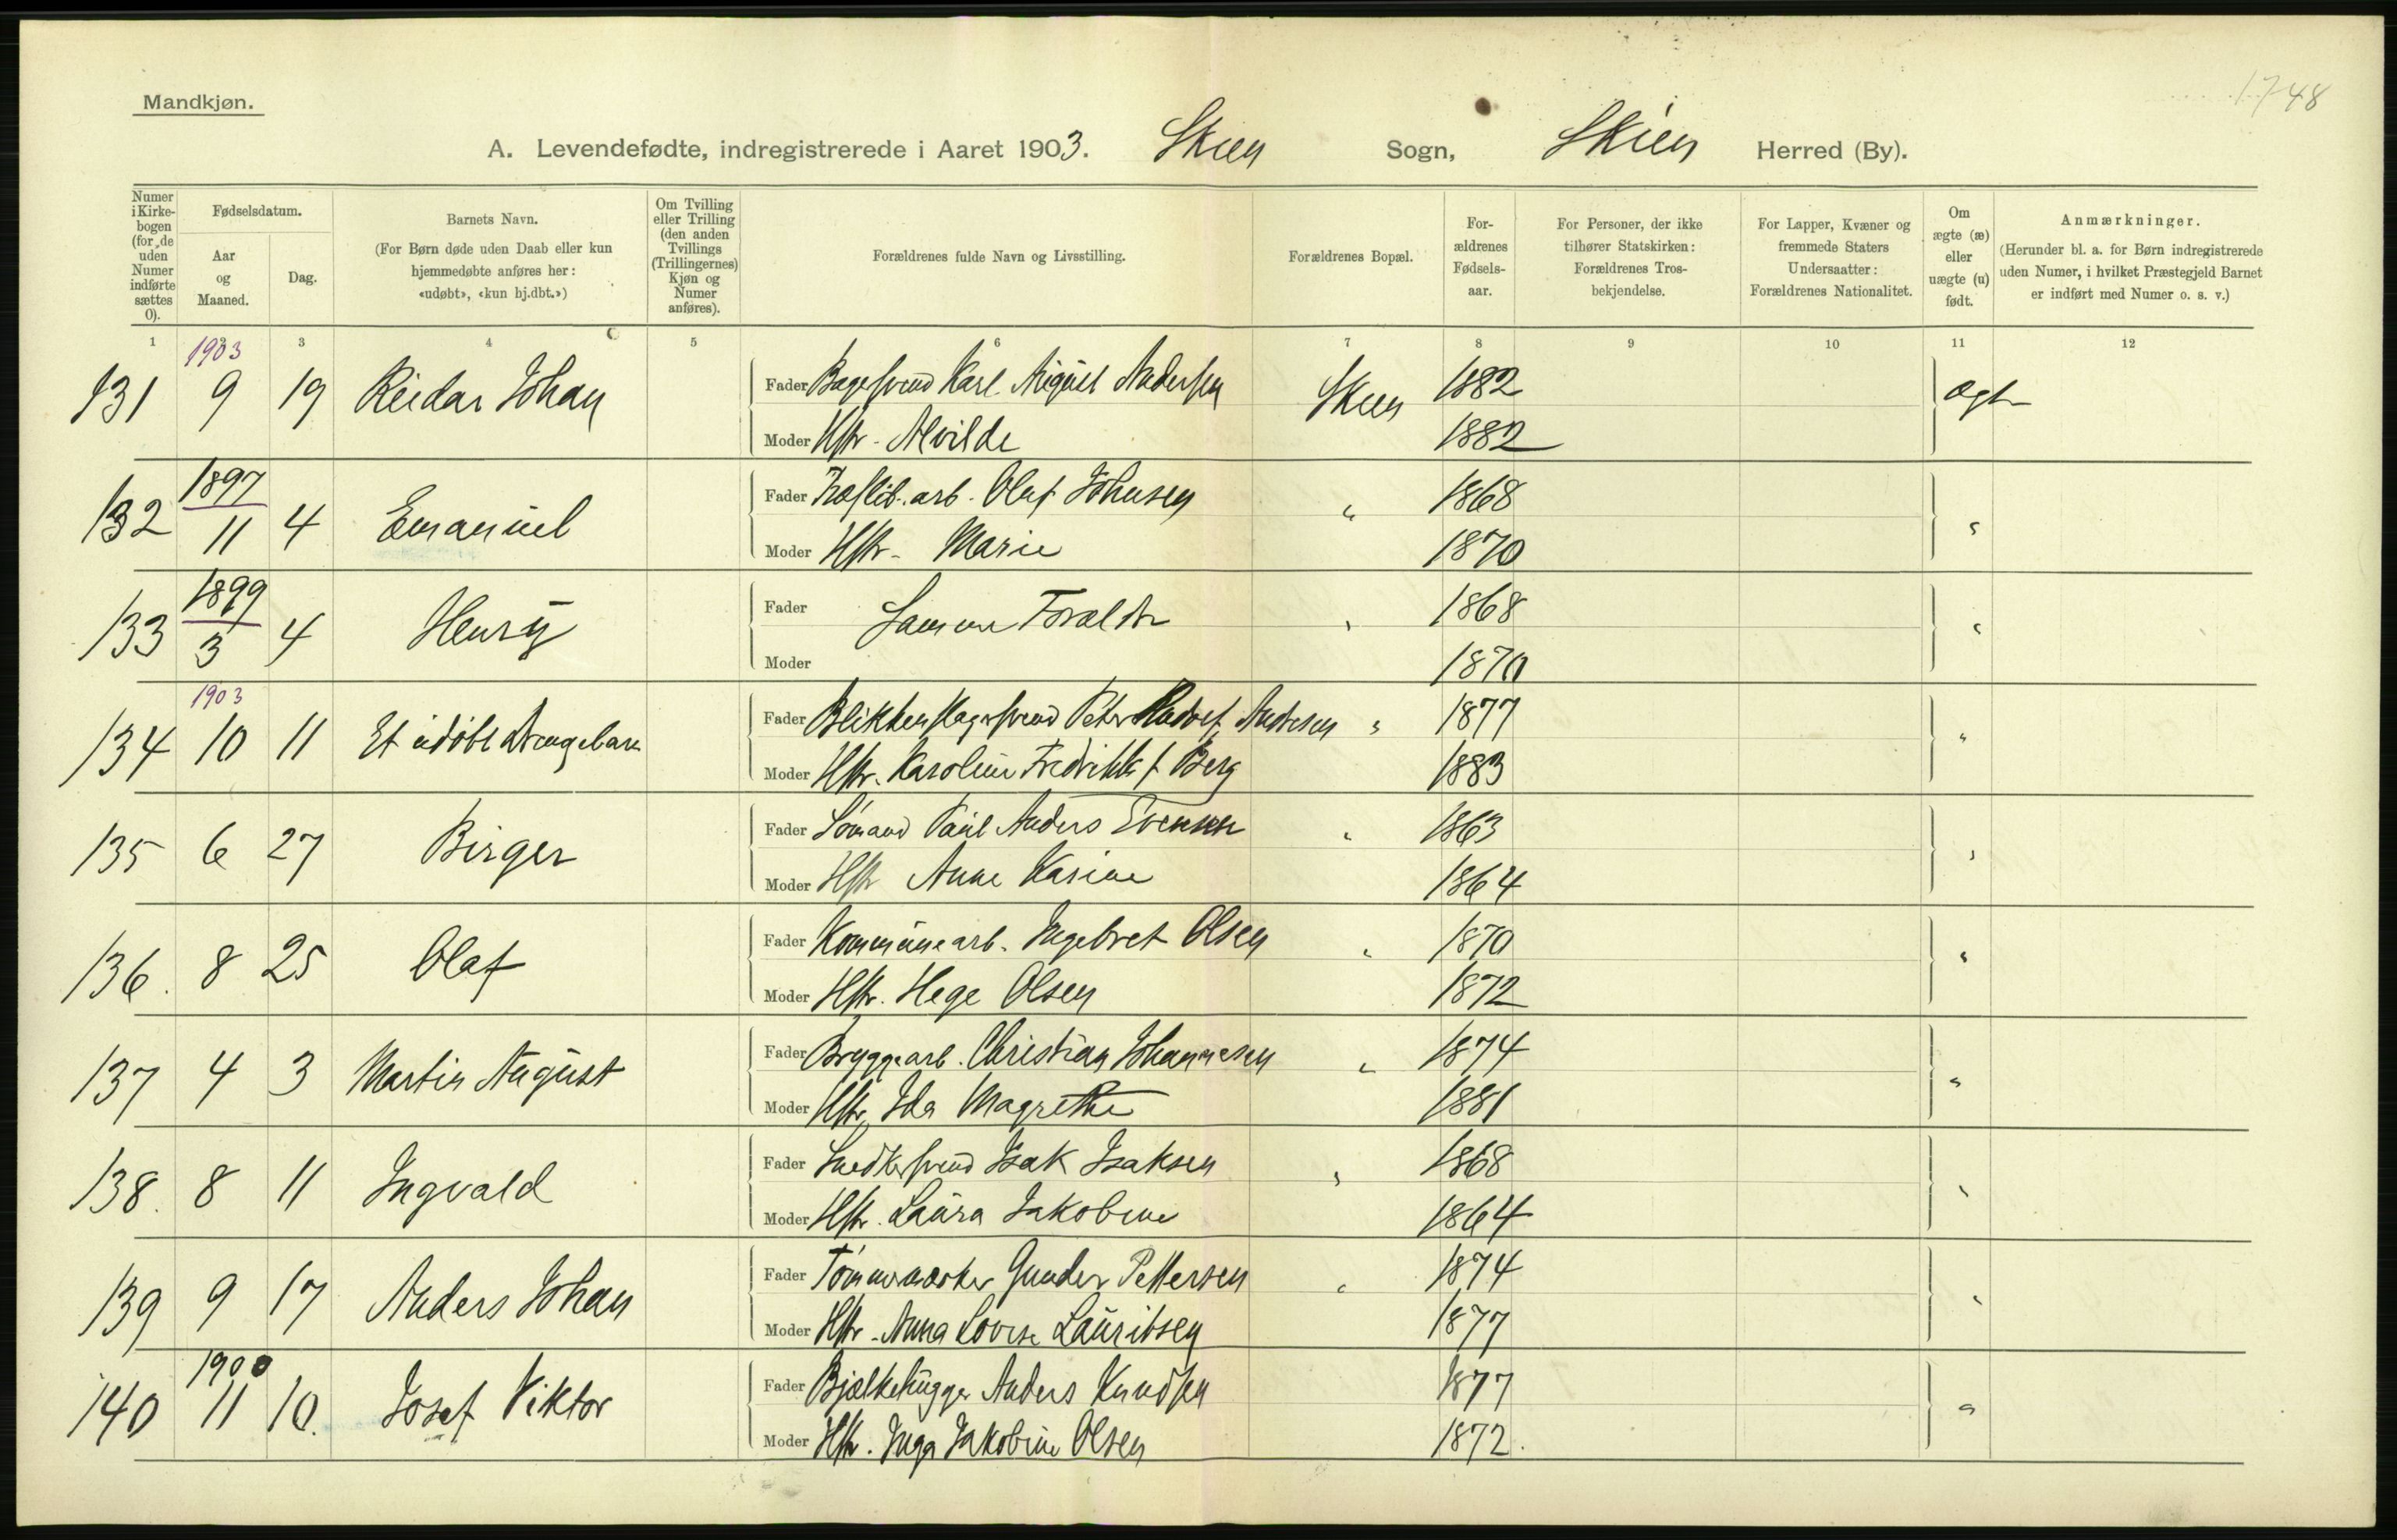 Mandkjøn.
1748
A. Levendefødte, indregistrerede i Aaret 1903. Skien Sogn, Skien Herred (By).
Numer i Kirkebogen (for de uden Numer indførte sættes 0).
Fødselsdatum.
Aar og Maaned.
Dag.
Barnets Navn.
(For Børn døde uden Daab eller kun hjemmedøbte anføres her: «udøbt», «kun hj.dbt.»)
Om Tvilling eller Trilling (den anden Tvillings (Trillingernes) Kjøn og Numer anføres).
Forældrenes fulde Navn og Livsstilling.
Forældrenes Bopæl.
Forældrenes Fødselsaar.
For Personer, der ikke tilhører Statskirken: Forældrenes Trosbekjendelse.
For Lapper, Kvæner og fremmede Staters Undersaatter: Forældrenes Nationalitet.
Om ægte (æ) eller uægte (u) født.
Anmærkninger.
(Herunder bl. a. for Børn indregistrerede uden Numer, i hvilket Præstegjeld Barnet er indført med Numer o. s. v.)
1 3 4 5 6 7 8 9 10 11 12
131 1903 9 19 Reidar Johan Fader Bagersvend Karl August Andersen Skien 1882 Ægte
Moder Hstr. Alvilde 1882
132 1897 11 4 Emanuel Fader Træslib.arb. Olaf Johnsen " 1868 "
Moder Hstr. Marie 1870
133 1899 3 4 Henry Fader Samme Foreldre " 1868 "
Moder 1870
134 1903 10 11 Et udöbt Drengebarn Fader Blikkenslagersvend Peter Rudolf Andresen " 1877 "
Moder Hstr. Karoline Fredrikke f Berg 1883
135 6 27 Birger Fader Sömand Paul Anders Evensen " 1863 "
Moder Hstr Anne Karine 1864
136. 8 25 Olaf Fader Kommunearb. Ingebret Olsen " 1870 "
Moder Hstr. Hege Olsen 1872
137 4 3 Martin August Fader Bryggearb. Christian Johannesen " 1874 "
Moder Hstr. Ida Magrethe 1881
138. 8 11 Ingvald Fader Snedkersvend Isak Isaksen " 1868 "
Moder Hstr. Laura Jakobine 1864
139 9 17 Anders Johan Fader Tömmermærker Gunder Pettersen " 1874 "
Moder Hstr. Anna Lovise Lauritsen 1877
140 1900 11 10. Josef Viktor Fader Bjælkehugger Anders Knudsen 1877 "
Moder Hstr. Inga Jakobine Olsen 1872.